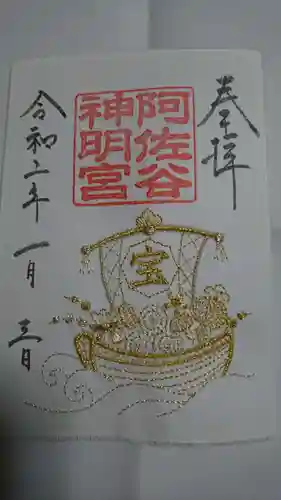 奉拝
阿佐谷
神明宮
宝
令和二年 一月 三日